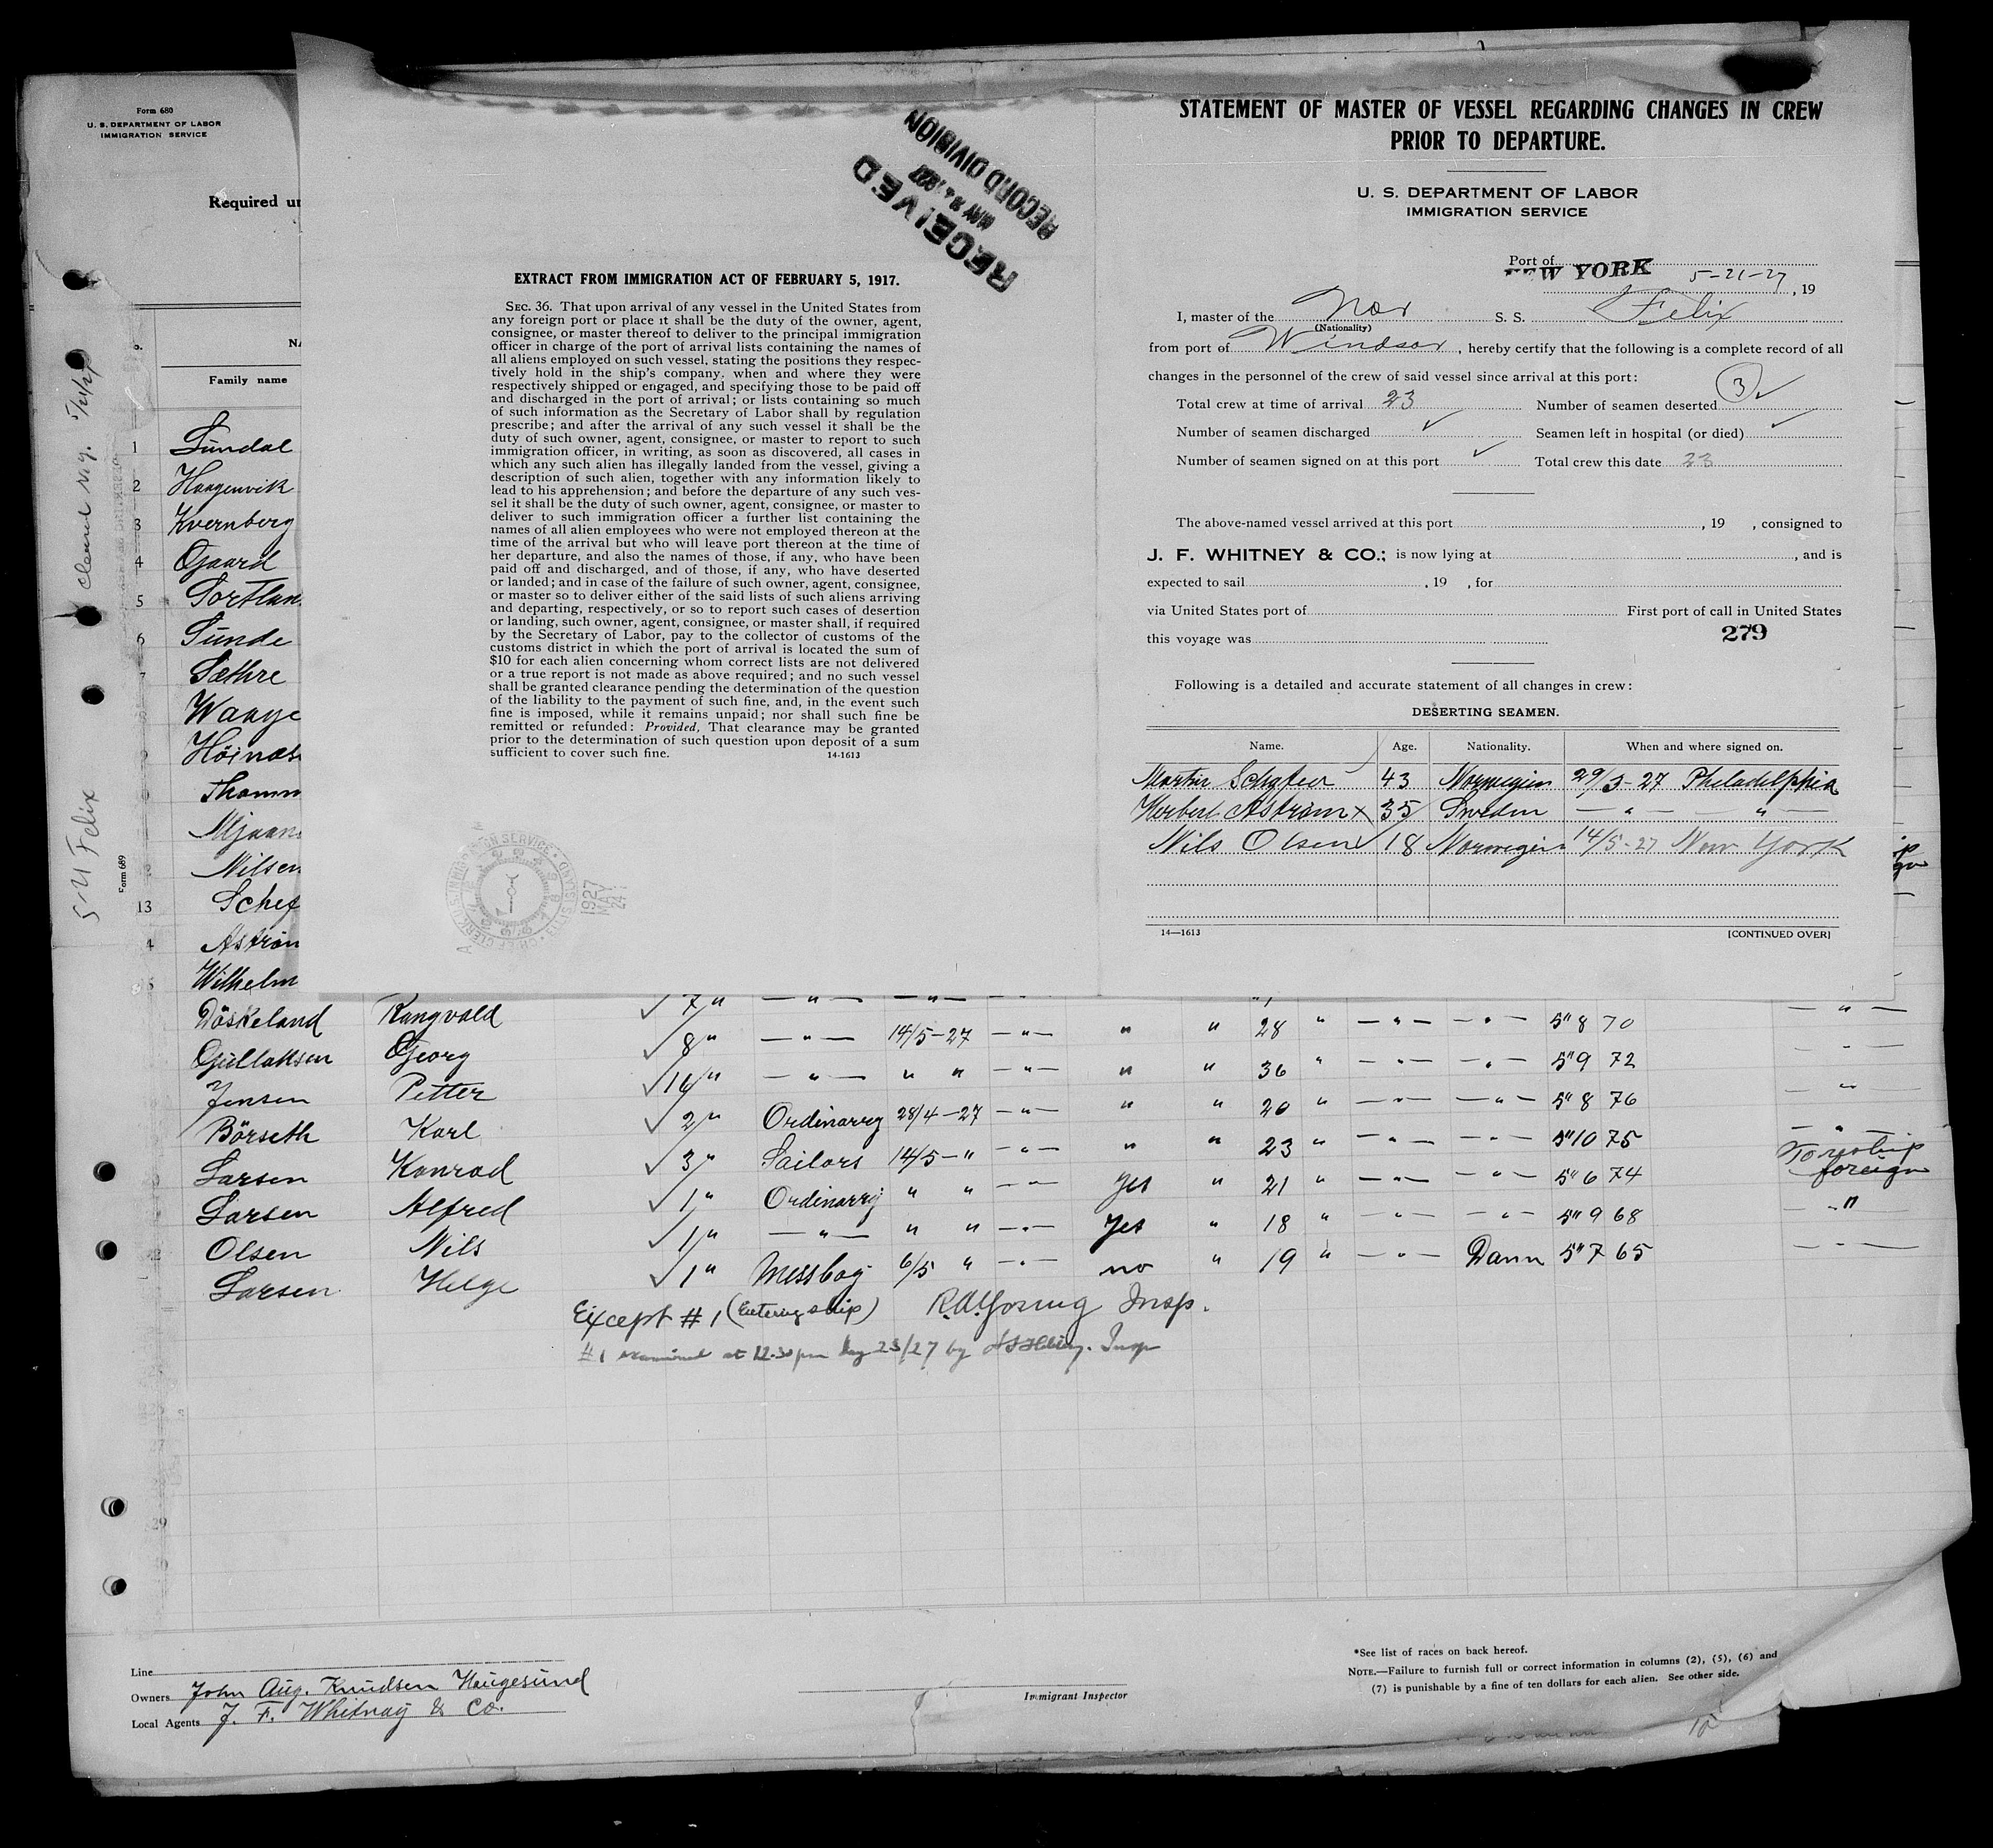 Form 680
U. S. DEPARTMENT OF LABOR
IMMIGRATION SERVICE
Required un
Family name
1 Sundal
2 Haagenvik
3 Kvernberg
4 Ogaard
5 Tortlan
6 Sunde
7 Sæthre
Waage
Höinæs
Thomm
Mjaan
Nilsen
13 Schef
4 Aström
5 Wilhelm
cleard 5/21/27
S. Felix
Form 689
RECEIVED
MAY 24 1927
RECORD DIVISION
EXTRACT FROM IMMIGRATION ACT OF FEBRUARY 5, 1917.
SEC. 36. That upon arrival of any vessel in the United States from
any foreign port or place it shall be the duty of the owner, agent,
consignee, or master thereof to deliver to the principal immigration
officer in charge of the port of arrival lists containing the names of
all aliens employed on such vessel, stating the positions they respec-
tively hold in the ship's company, when and where they were
respectively shipped or engaged, and specifying those to be paid off
and discharged in the port of arrival; or lists containing so much
of such information as the Secretary of Labor shall by regulation
prescribe; and after the arrival of any such vessel it shall be the
duty of such owner, agent, consignee, or master to report to such
immigration officer, in writing, as soon as discovered, all cases in
which any such alien has illegally landed from the vessel, giving a
description of such alien, together with any information likely to
lead to his apprehension; and before the departure of any such ves-
sel it shall be the duty of such owner, agent, consignee, or master to
deliver to such immigration officer a further list containing the
names of all alien employees who were not employed thereon at the
time of the arrival but who will leave port thereon at the time of
her departure, and also the names of those, if any, who have been
paid off and discharged, and of those, if any, who have deserted
or landed; and in case of the failure of such owner, agent, consignee,
or master so to deliver either of the said lists of such aliens arriving
and departing, respectively, or so to report such cases of desertion
or landing, such owner, agent, consignee, or master shall, if required
by the Secretary of Labor, pay to the collector of customs of the
customs district in which the port of arrival is located the sum of
$10 for each alien concerning whom correct lists are not delivered
or a true report is not made as above required; and no such vessel
shall be granted clearance pending the determination of the question
of the liability to the payment of such fine, and, in the event such
fine is imposed, while it remains unpaid; nor shall such fine be
remitted or refunded: Provided, That clearance may be granted
prior to the determination of such question upon deposit of a sum
sufficient to cover such fine. 14-1613
1927 MAY 24
STATEMENT OF MASTER OF VESSEL REGARDING CHANGES IN CREW
PRIOR TO DEPARTURE.
U. S. DEPARTMENT OF LABOR
IMMIGRATION SERVICE
Port of NEW YORK
5-21-27, 19
I, master of the Nor S. S. Felix
(Nationality)
from port of Windsor, hereby certify that the following is a complete record of all
changes in the personnel of the crew of said vessel since arrival at this port:
Total crew at time of arrival 23 Number of seamen deserted 3 ✓
Number of seamen discharged ✓ Seamen left in hospital (or died) ✓
Number of seamen signed on at this port ✓ Total crew this date 23
The above-named vessel arrived at this port , 19 , consigned to
J. F. WHITNEY & CO.; is now lying at , and is
expected to sail , 19 , for
via United States port of First port of call in United States
this voyage was
279
Following is a detailed and accurate statement of all changes in crew:
DESERTING SEAMEN.
Name. Age. Nationality. When and where signed on.
Martin Schefter 43 Norwegien 29/3-27 Philadelphia
Herbert Aström x 35 Sweden — " — — " —
Nils Olsen 18 Norwegien 14/5-27 New York
14—1613 [CONTINUED OVER]
✓ 7" — " — — " —
Döskeland Rangvald ✓ 8" — " — 14/5-27 — " — " " 28 " — " — — " — 5" 8 70 — " —
Gullaksen Georg ✓ 16" — " — " " — " — " " 36 " — " — " 5" 9 72
Jensen Petter ✓ 2" Ordinarry 28/4-27 — " — " " 20 " — " — — " — 5" 8 76 — " —
Börseth Karl ✓ 3" Sailors 14/5-" — " — " " 23 " — " — — " — 5" 10 75 — " —
Larsen Konrad ✓ 1" Ordinarrÿ " " — " — Yes " 21 " — " — — " — 5" 6 74 To reship foreign
Larsen Alfred ✓ 1" — " — " " — " — Yes " 18 " — " — — " — 5" 9 68 — " —
Olsen Nils ✓ 1" Messboy 6/5 " — " — no " 19 " — " — Dann 5" 7 65 — " —
Larsen Helge
Except # 1 (Entering ship) R.A. Young Insp.
#1 examined at 12.30 pm May 23/27 by Insp
29
Line
Owners John Aug. Knudsen Haugesund
Local Agents J. F. Whitnay & Co.
Immigrant Inspector
*See list of races on back hereof.
NOTE.—Failure to furnish full or correct information in columns (2), (5), (6) and
(7) is punishable by a fine of ten dollars for each alien. See other side.